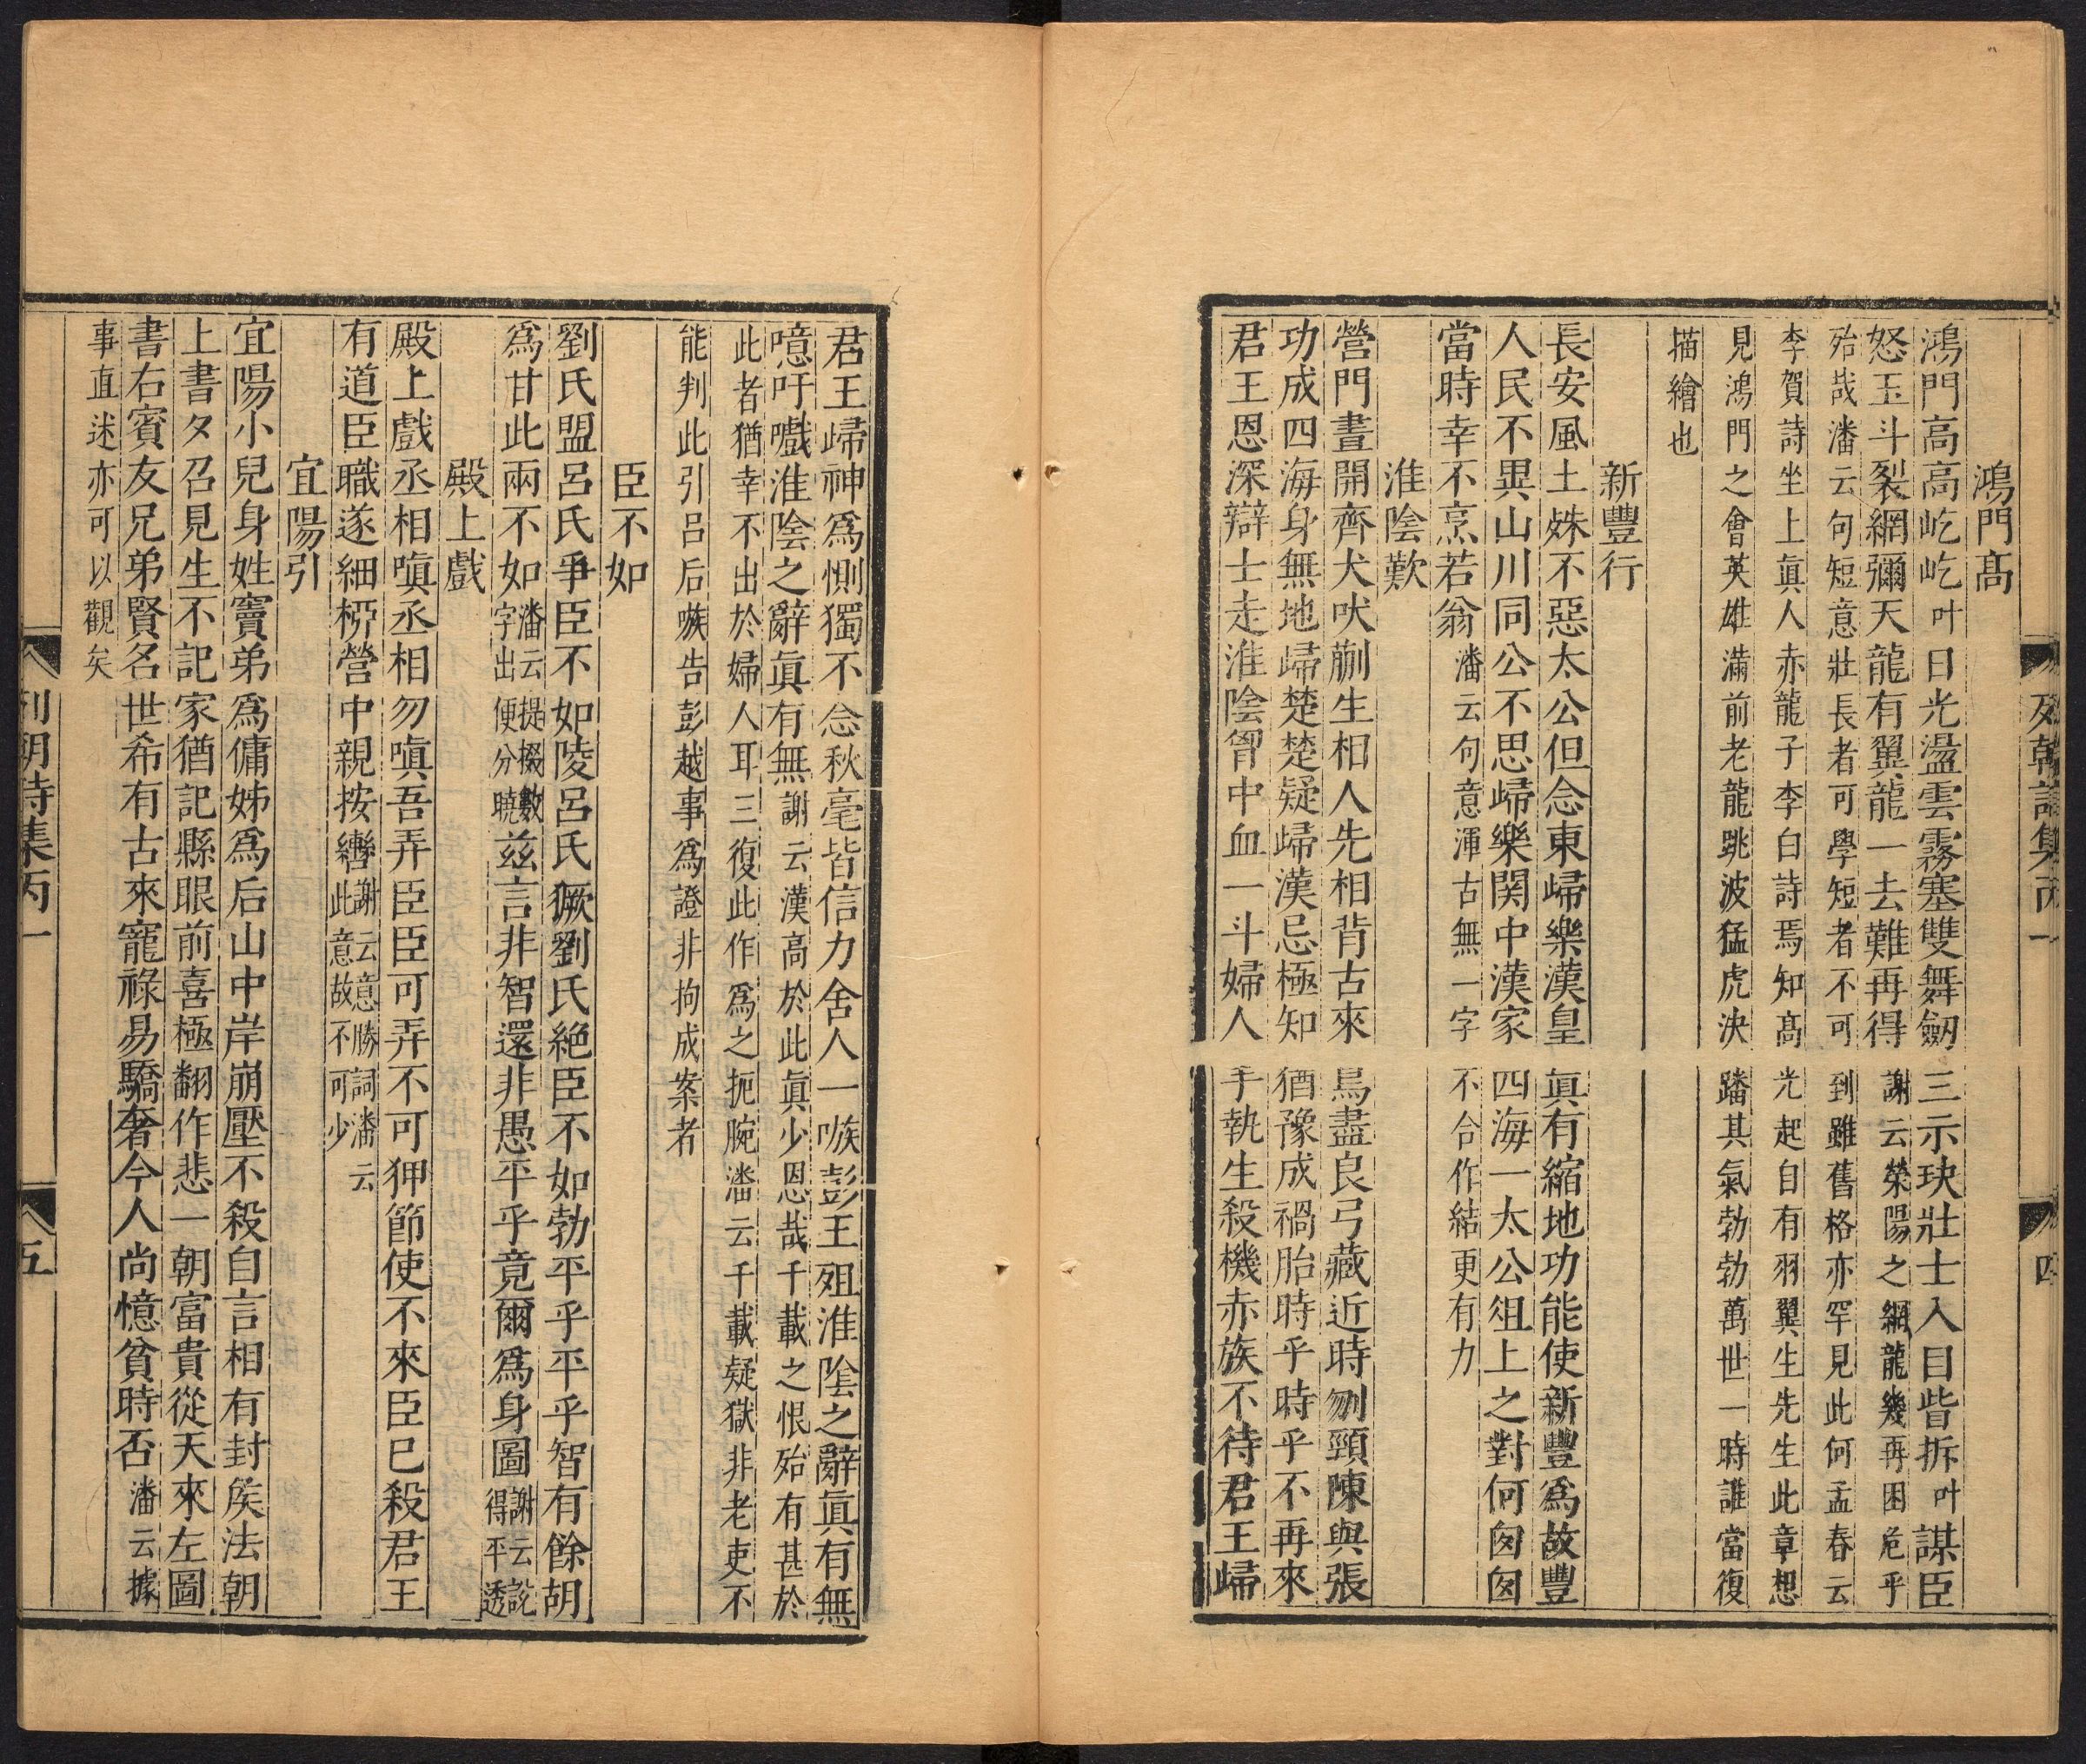 列朝詩集丙一
四
鴻門高
鴻門高高屹屹叶日光盪雲霧塞雙舞劔三示玦壯士入目眥拆叶謀臣
怒玉斗裂網彌天龍有翼龍一去難再得謝云滎陽之網龍幾再困危乎
殆哉潘云句短意壯長者可學短者不可到雖舊格亦罕見此何孟春云
李賀詩坐上眞人赤龍子李白詩焉知高光起自有羽翼生先生此章想
見鴻門之會英雄滿前老龍跳波猛虎決蹯其氣勃勃萬世一時誰當復
描繪也
新豐行
長安風土殊不惡太公但念東歸樂漢皇眞有縮地功能使新豐爲故豐
人民不異山川同公不思歸樂関中漢家四海一太公俎上之對何匆匆
當時幸不烹若翁潘云句意渾古無一字不合作結更有力
淮陰歎
營門晝開齊犬吠蒯生相人先相背古來鳥盡良弓藏近時刎頸陳與張
功成四海身無地歸楚楚疑歸漢忌極知猶豫成禍胎時乎時乎不再來
君王恩深辯士走淮陰胷中血一斗婦人手執生殺機赤族不待君王歸
君王歸神爲惻獨不念秋毫皆信力舍人一嗾彭王殂淮陰之辭眞有無
噫吁嚱淮陰之辭眞有無謝云漢高於此眞少恩哉千載之恨殆有甚於
此者猶幸不出於婦人耳三復此作爲之扼腕潘云千載疑獄非老吏不
能判此引呂后嗾告彭越事爲證非拘成案者
臣不如
劉氏盟呂氏爭臣不如陵呂氏獗劉氏絕臣不如勃平乎平乎智有餘胡
爲甘此兩不如潘云提掇數字出便分曉兹言非智還非愚平乎竟爾爲身圖謝云說得平透
殿上戲
殿上戲丞相嗔丞相勿嗔吾弄臣臣可弄不可狎節使不來臣已殺君王
有道臣職遂細柳營中親按轡謝云意勝詞潘云此意故不可少
宜陽引
宜陽小兒身姓竇弟爲傭姊爲后山中岸崩壓不殺自言相有封矦法朝
上書夕召見生不記家猶記縣眼前喜極翻作悲一朝富貴從天來左圖
書右賓友兄弟賢名世希有古來寵祿易驕奢今人尚憶貧時否潘云據
事直述亦可以觀矣
列朝詩集丙一
五